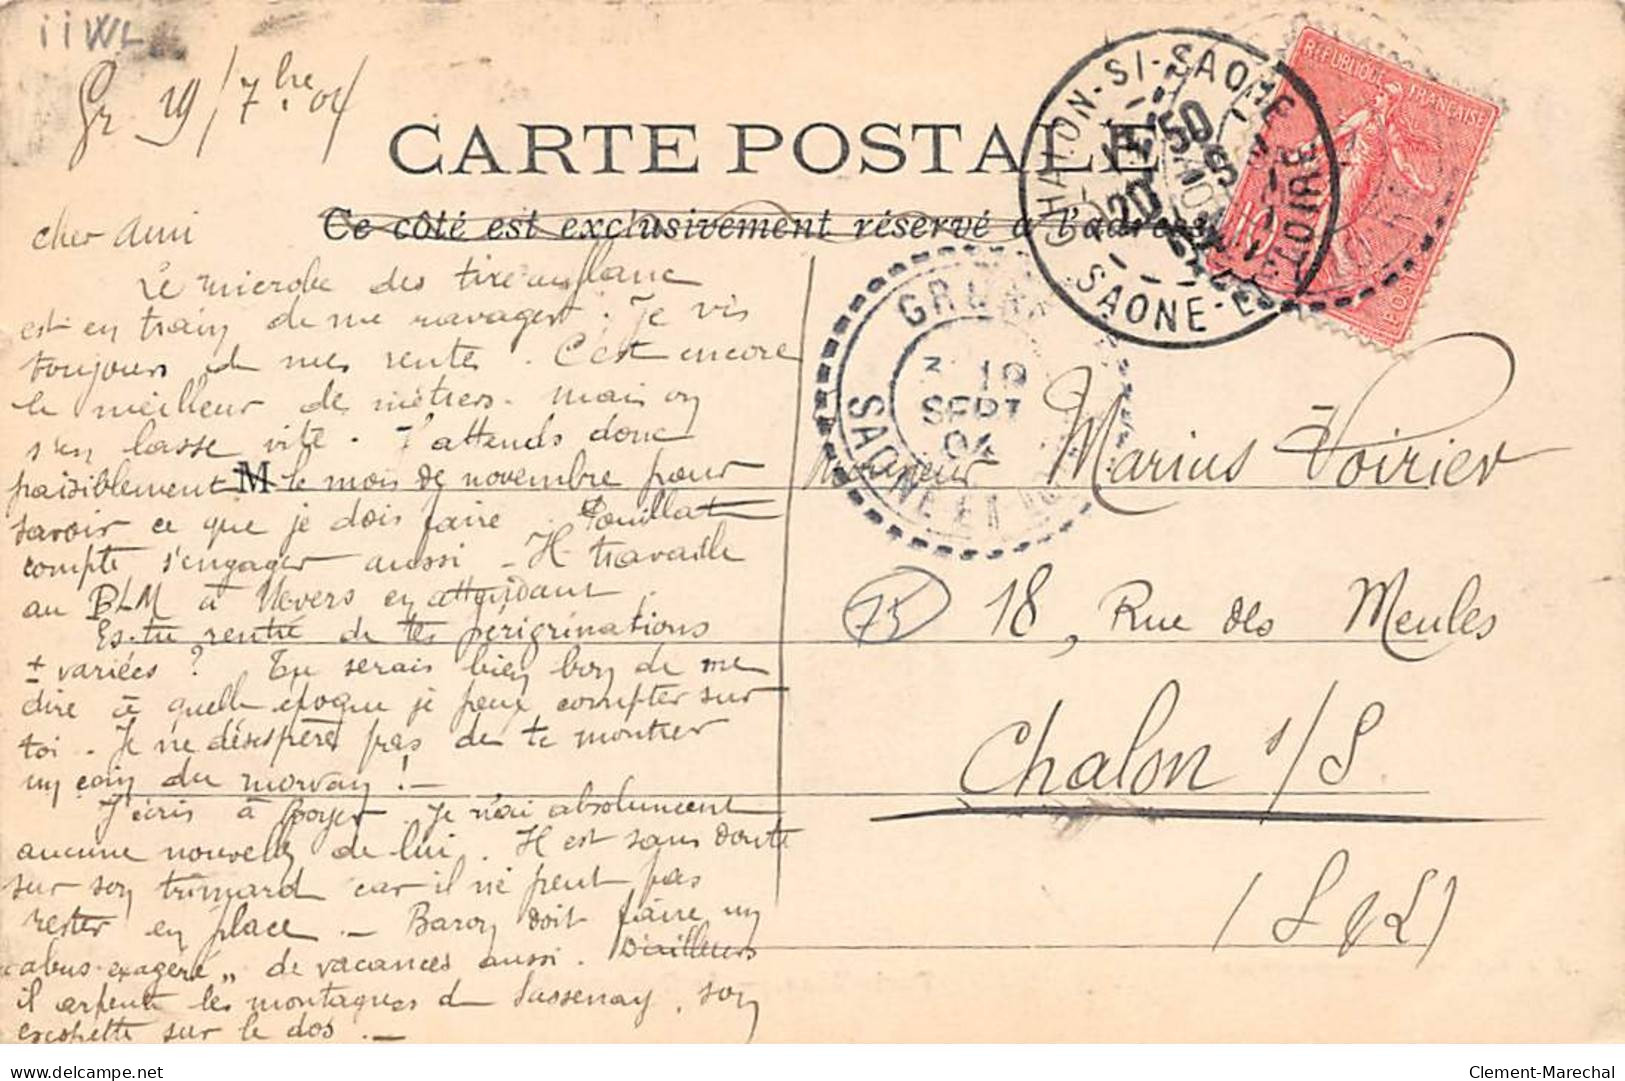 iiWL
Gr 19/7bre 04
CARTE POSTALE
Ce côté est exclusivement réservé à l'adresse
CHALON-S/-SAONE
SAONE-ET-LOIRE
20
RÉPUBLIQUE FRANÇAISE
10
GRURY
19
SEPT
04
SAONE ET
cher Ami
Le microbe des tire au flanc
est en train de me ravager. Je vis
toujours de mes rentes. C'est encore
le meilleur des métiers. Mais on
s'en lasse vite. J'attends donc
paisiblement M le mois de novembre pour
savoir ce que je dois faire. Pouillat
compte s'engager aussi - Il travaille
au BLM à Nevers en attendant.
Es-tu rentré de tes pérégrinations
± variées ? Tu serais bien bon de me
dire à quelle époque je peux compter sur
toi. Je ne désespère pas de te montrer
un coin du morvan ! -
J'écris à Boyer. Je n'ai absolument
aucune nouvelle de lui. Il est sans doute
sur son trimard car il ne peut pas
rester en place. - Baron doit faire un
"abus exagéré" de vacances aussi. D'ailleurs
il arpente les montagnes de Sassenay, son
escopette sur le dos. -
Monsieur Marius Voirier
75
18, Rue des Meules
Chalon s/S
(S & L)
Clement-Marechal